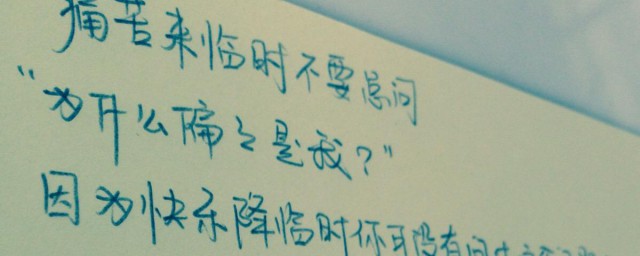 痛苦来临时不要总问
“为什么偏々是我？”
因为快乐降临时你可没有问